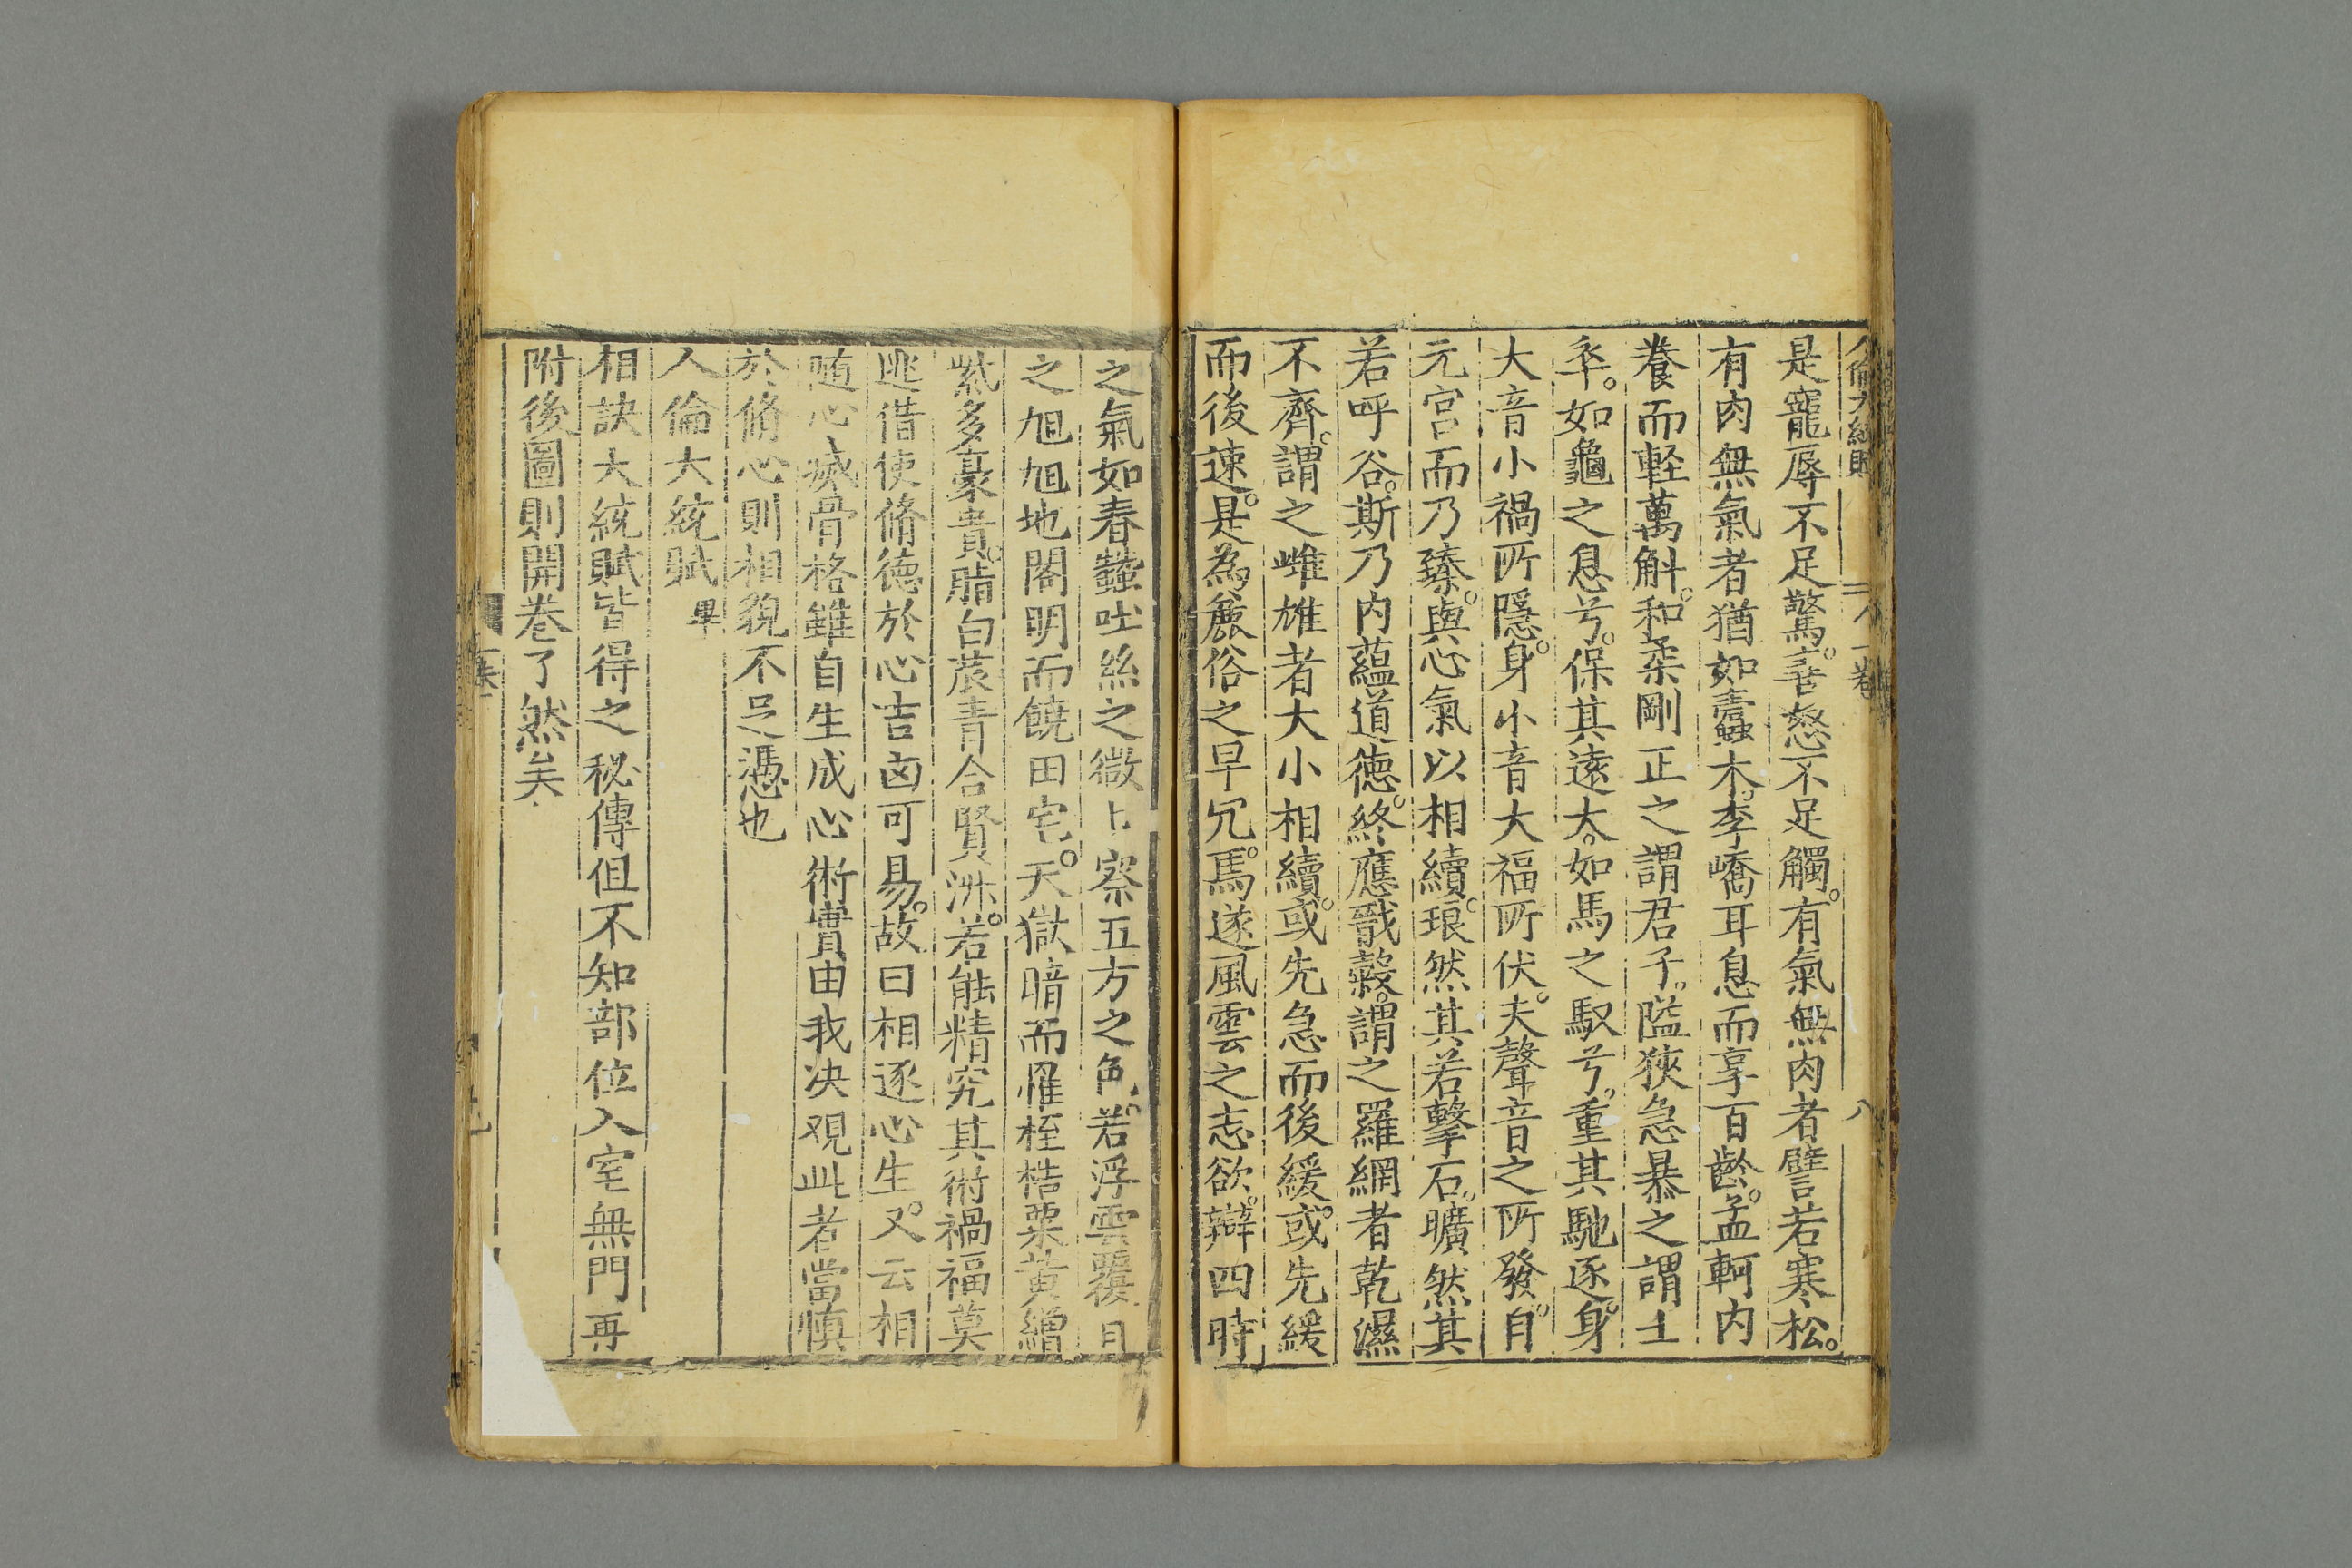 人倫大統賦 一卷 八
是寵辱不足驚。喜怒不足觸。有氣無肉者譬若寒松。
有肉無氣者猶如蠹木。李嶠耳息而享百齡。孟軻內
養而軽萬斛。和柔剛正之謂君子。隘狹急暴之謂士
卒。如龜之息兮。保其遠大。如馬之馭兮。重其馳逐。身
大音小禍所隱。身小音大福所伏。夫聲音之所發。自
元宮而乃臻。與心氣以相續。琅然其若擊石。曠然其
若呼谷。斯乃內蘊道德。終應戩穀。謂之羅網者乾濕
不齊。謂之雌雄者大小相續。或先急而後緩。或先緩
而後速。是為麁俗之早冗。馬遂風雲之志欲。辯四時
之氣如春蠶吐絲之微上察五方之色。若浮雲覆日
之旭旭地閣明而饒田宅。天獄暗而罹桎梏栗黃繒
紫多豪貴。脂白䓤青合賢淋。若能精究其術禍福莫
逃借使脩德於心吉凶可易。故曰相逐心生。又云相
随心滅骨格雖自生成心術實由我決观此者當慎
於脩心則相貌不足憑也
人倫大統賦 畢
相訣大統賦皆得之秘傳但不知部位入宅無門再
附後圖則開卷了然矣